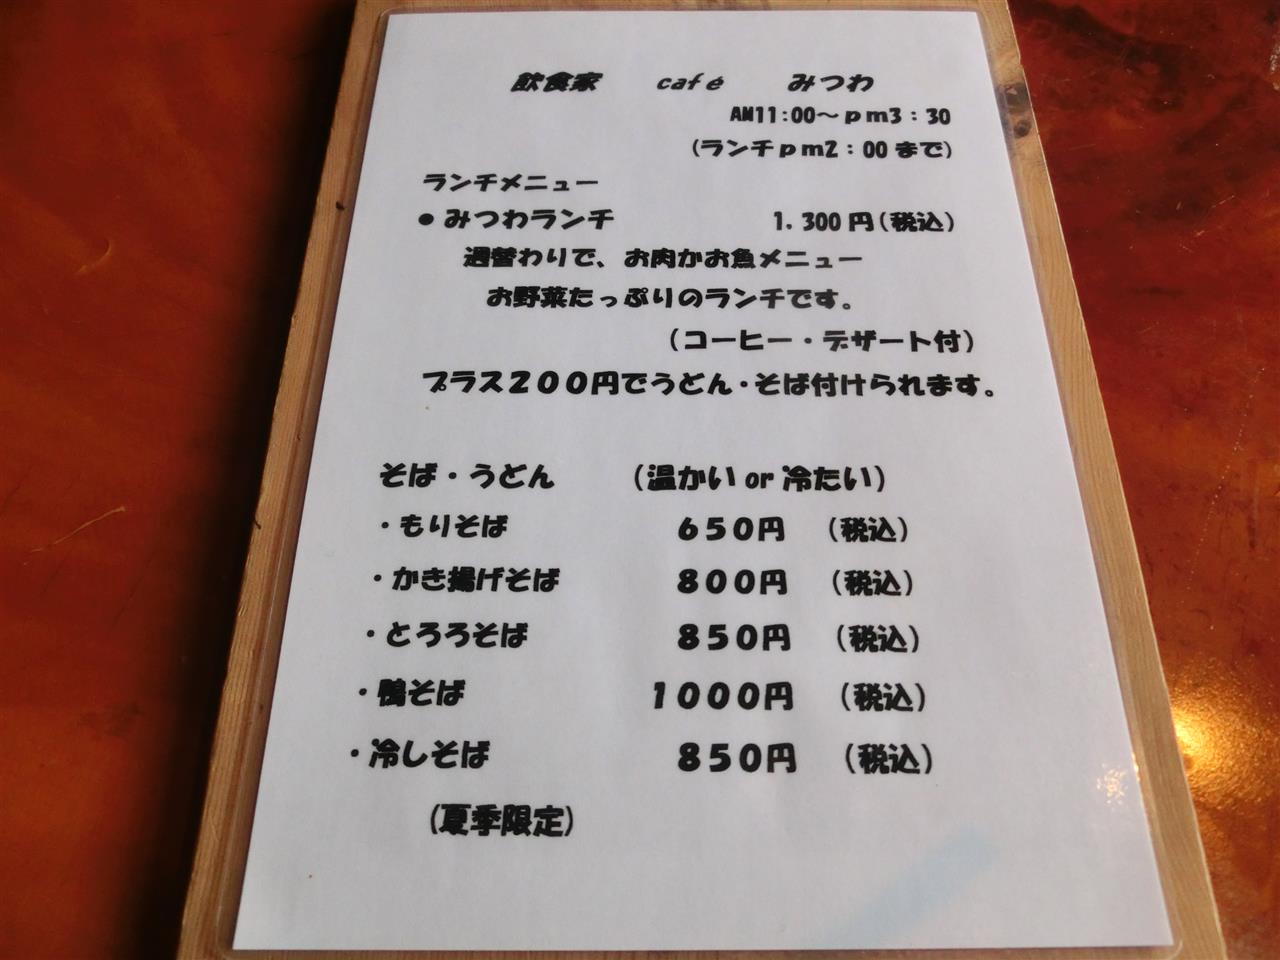 飲食家 café みつわ
AM11:00～pm3：30
(ランチpm2：00まで)
ランチメニュー
●みつわランチ 1.300円(税込)
週替わりで、お肉かお魚メニュー
お野菜たっぷりのランチです。
(コーヒー・デザート付)
プラス200円でうどん・そば付けられます。
そば・うどん (温かいor冷たい)
・もりそば 650円 (税込)
・かき揚げそば 800円 (税込)
・とろろそば 850円 (税込)
・鴨そば 1000円 (税込)
・冷しそば 850円 (税込)
(夏季限定)